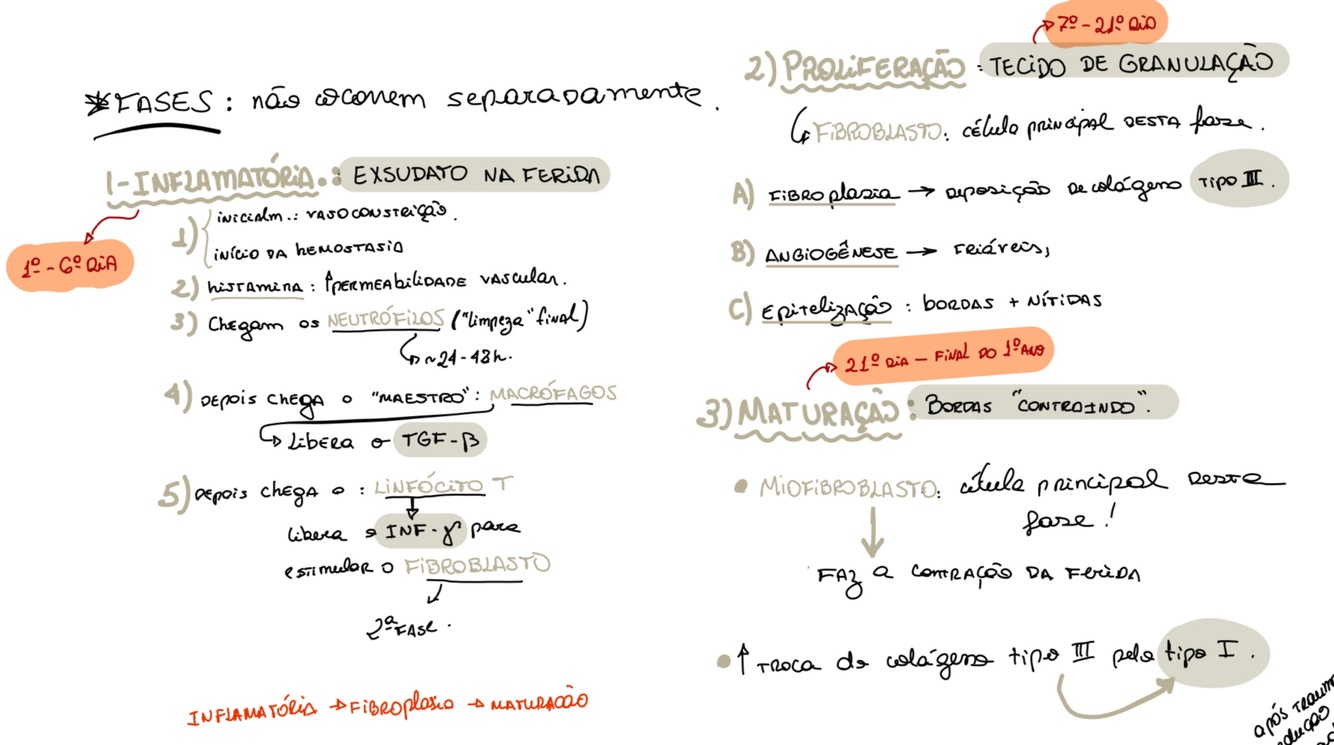 *FASES : não ocorrem separadamente.
1-INFLAMATÓRIA. : EXSUDATO NA FERIDA
1º - 6º DIA
1) inicialm.: vasoconstrição.
início da hemostasia
2) histamina : ↑permeabilidade vascular.
3) Chegam os NEUTRÓFILOS ("limpeza" final)
↳ ~24-48h.
4) depois chega o "MAESTRO": MACRÓFAGOS
↳ Libera o TGF-β
5) depois chega o : LINFÓCITO T
libera o INF-γ para
estimular o FIBROBLASTO
2ª FASE.
INFLAMATÓRIA → FIBROPLASIA → MATURAÇÃO
7º - 21º DIA
2) PROLIFERAÇÃO : TECIDO DE GRANULAÇÃO
↳ FIBROBLASTO: célula principal desta fase.
A) FIBROPLASIA → deposição de colágeno TIPO III.
B) ANGIOGÊNESE → FRIÁVEIS;
C) Epitelização : bordas + NÍTIDAS
21º DIA - FINAL DO 1º ANO
3) MATURAÇÃO : BORDAS "CONTRAINDO".
• MIOFIBROBLASTO: célula principal desta
fase!
FAZ a contração da ferida
• ↑ troca do colágeno tipo III pelo tipo I.
após